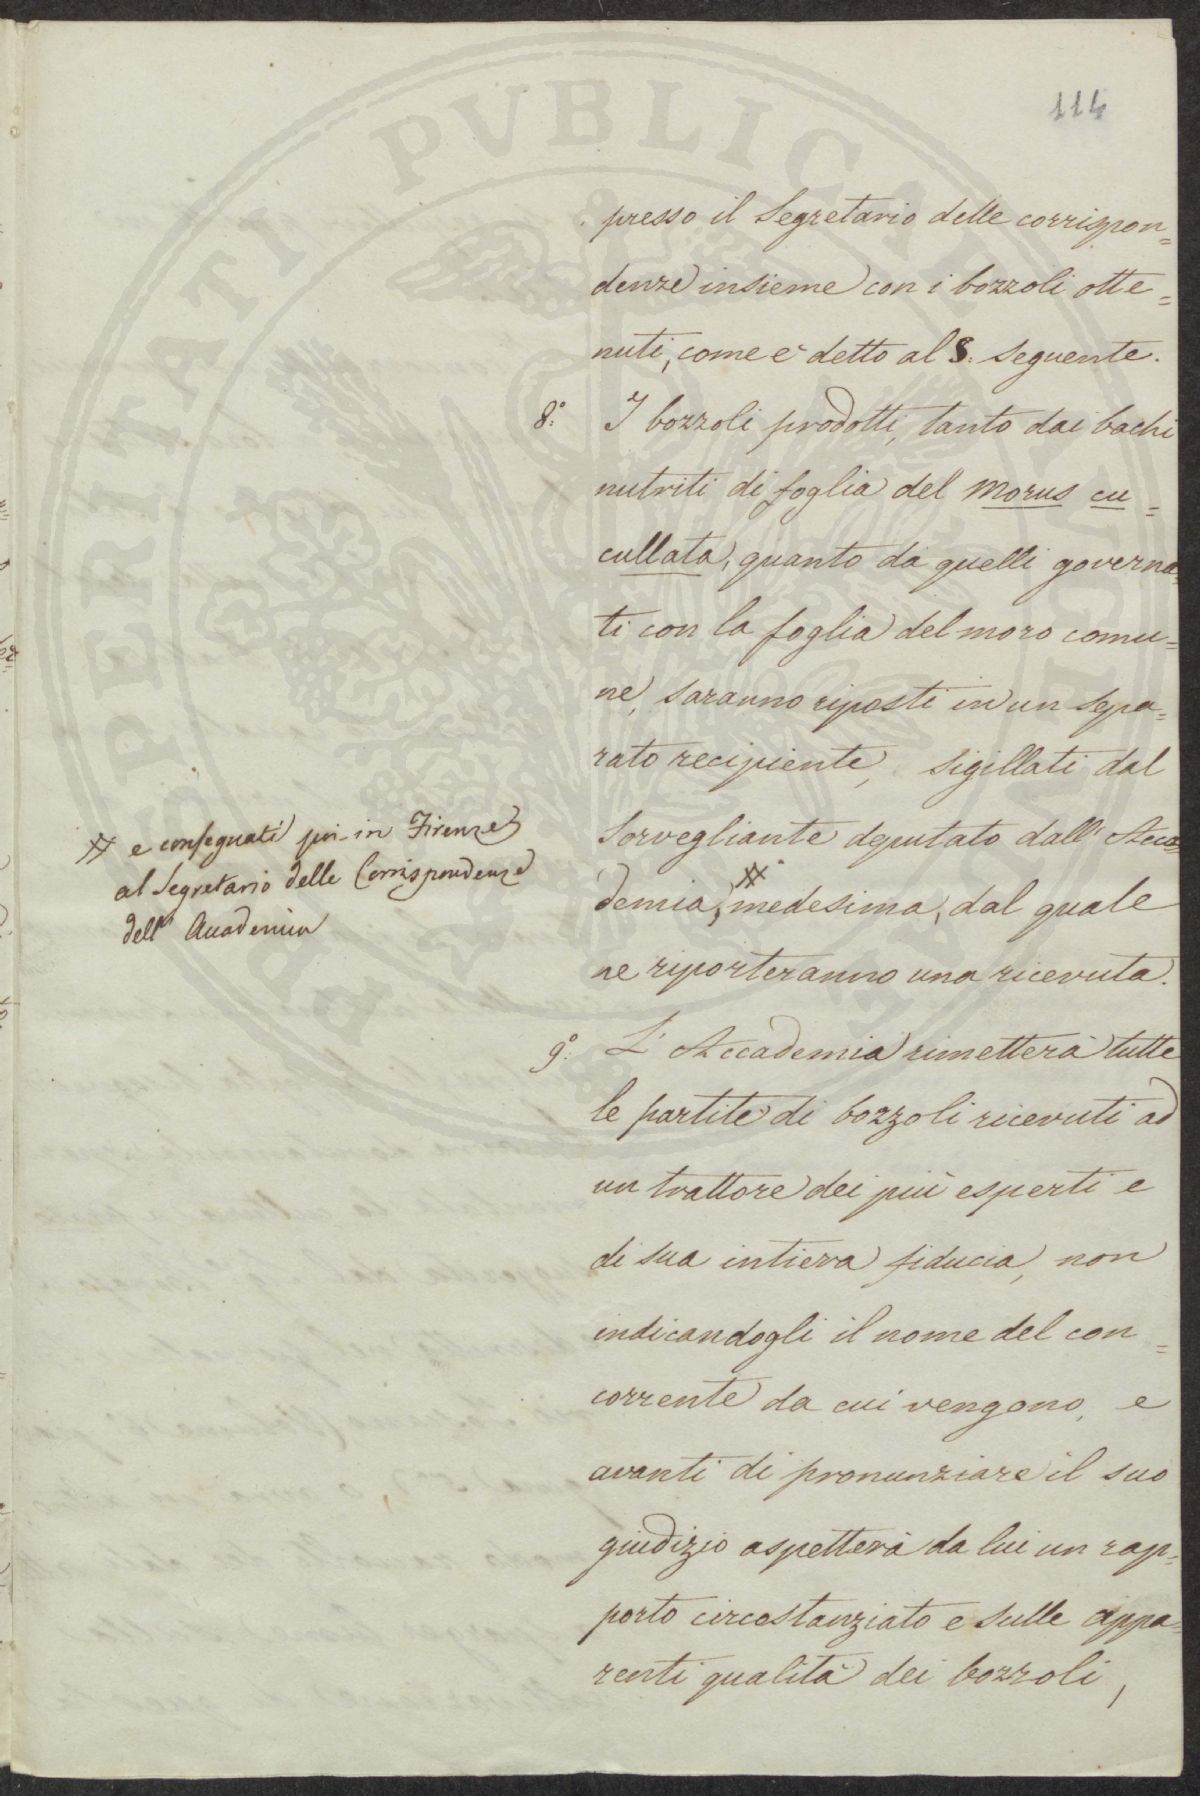 114
presso il Segretario delle corrispon=
denze insieme con i bozzoli otte=
nuti, come è detto al §: seguente.
8.° I bozzoli prodotti, tanto dai bachi
nutriti di foglia del Morus cu=
cullata, quanto da quelli governa=
ti con la foglia del moro comu=
ne, saranno riposti in un sepa=
rato recipiente, sigillati dal
Sorvegliante deputato dall'Acca=
demia, # medesima, dal quale
ne riporteranno una ricevuta.
# e consegnati poi in Firenze
al Segretario delle Corrispondenze
dell' Accademia
9.° L'Accademia rimetterà tutte
le partite di bozzoli ricevuti ad
un trattore dei più esperti e
di sua intiera fiducia, non
indicandogli il nome del con=
corrente da cui vengono, e
avanti di pronunziare il suo
giudizio aspetterà da lui un rap=
porto circostanziato e sulle appa=
renti qualità dei bozzoli,
PROSPERITATI PUBLICAE AUGENDAE